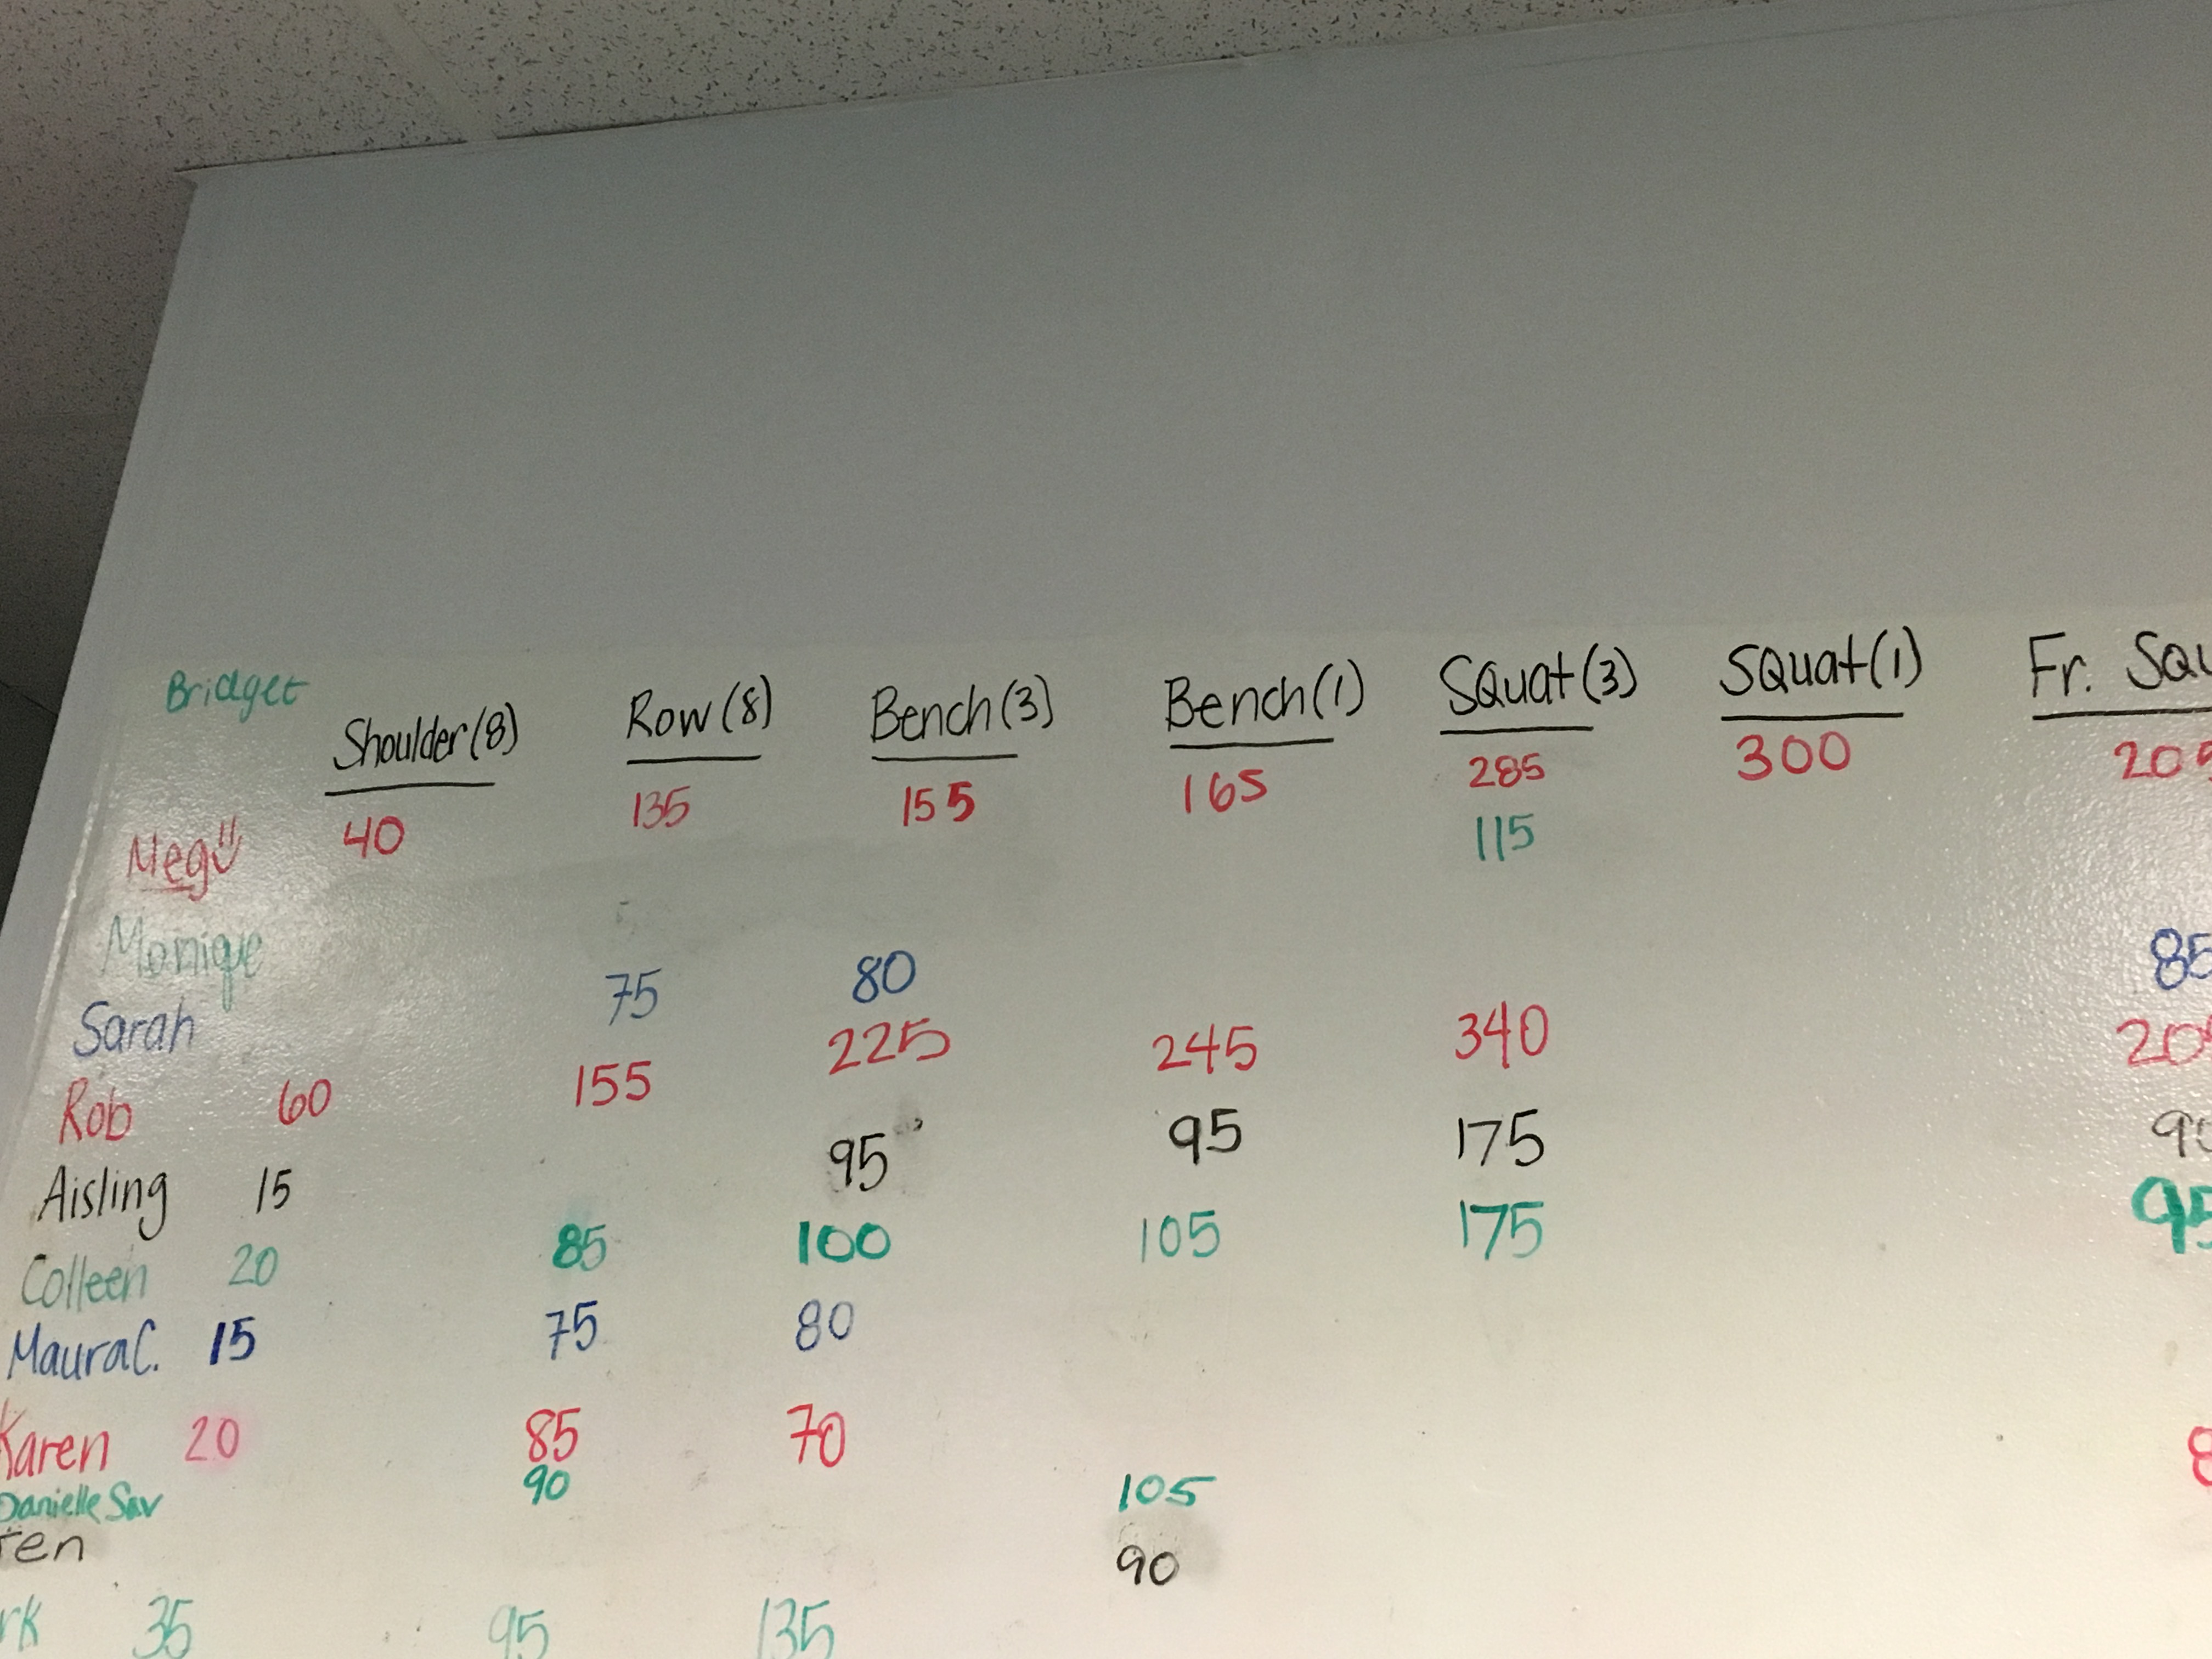 Bridget
Shoulder(8) Row(8) Bench(3) Bench(1) Squat(3) Squat(1) Fr. Squ
Meg 40 135 155 165 285 300 205
Monique 115
Sarah 75 80 85
Rob 60 155 225 245 340
Aisling 15 95 95 175
Colleen 20 85 100 105 175 95
Maura C. 15 75 80
Karen 20 85 70 8
Danielle Sav 90 105
ren 90
rk 35 95 135